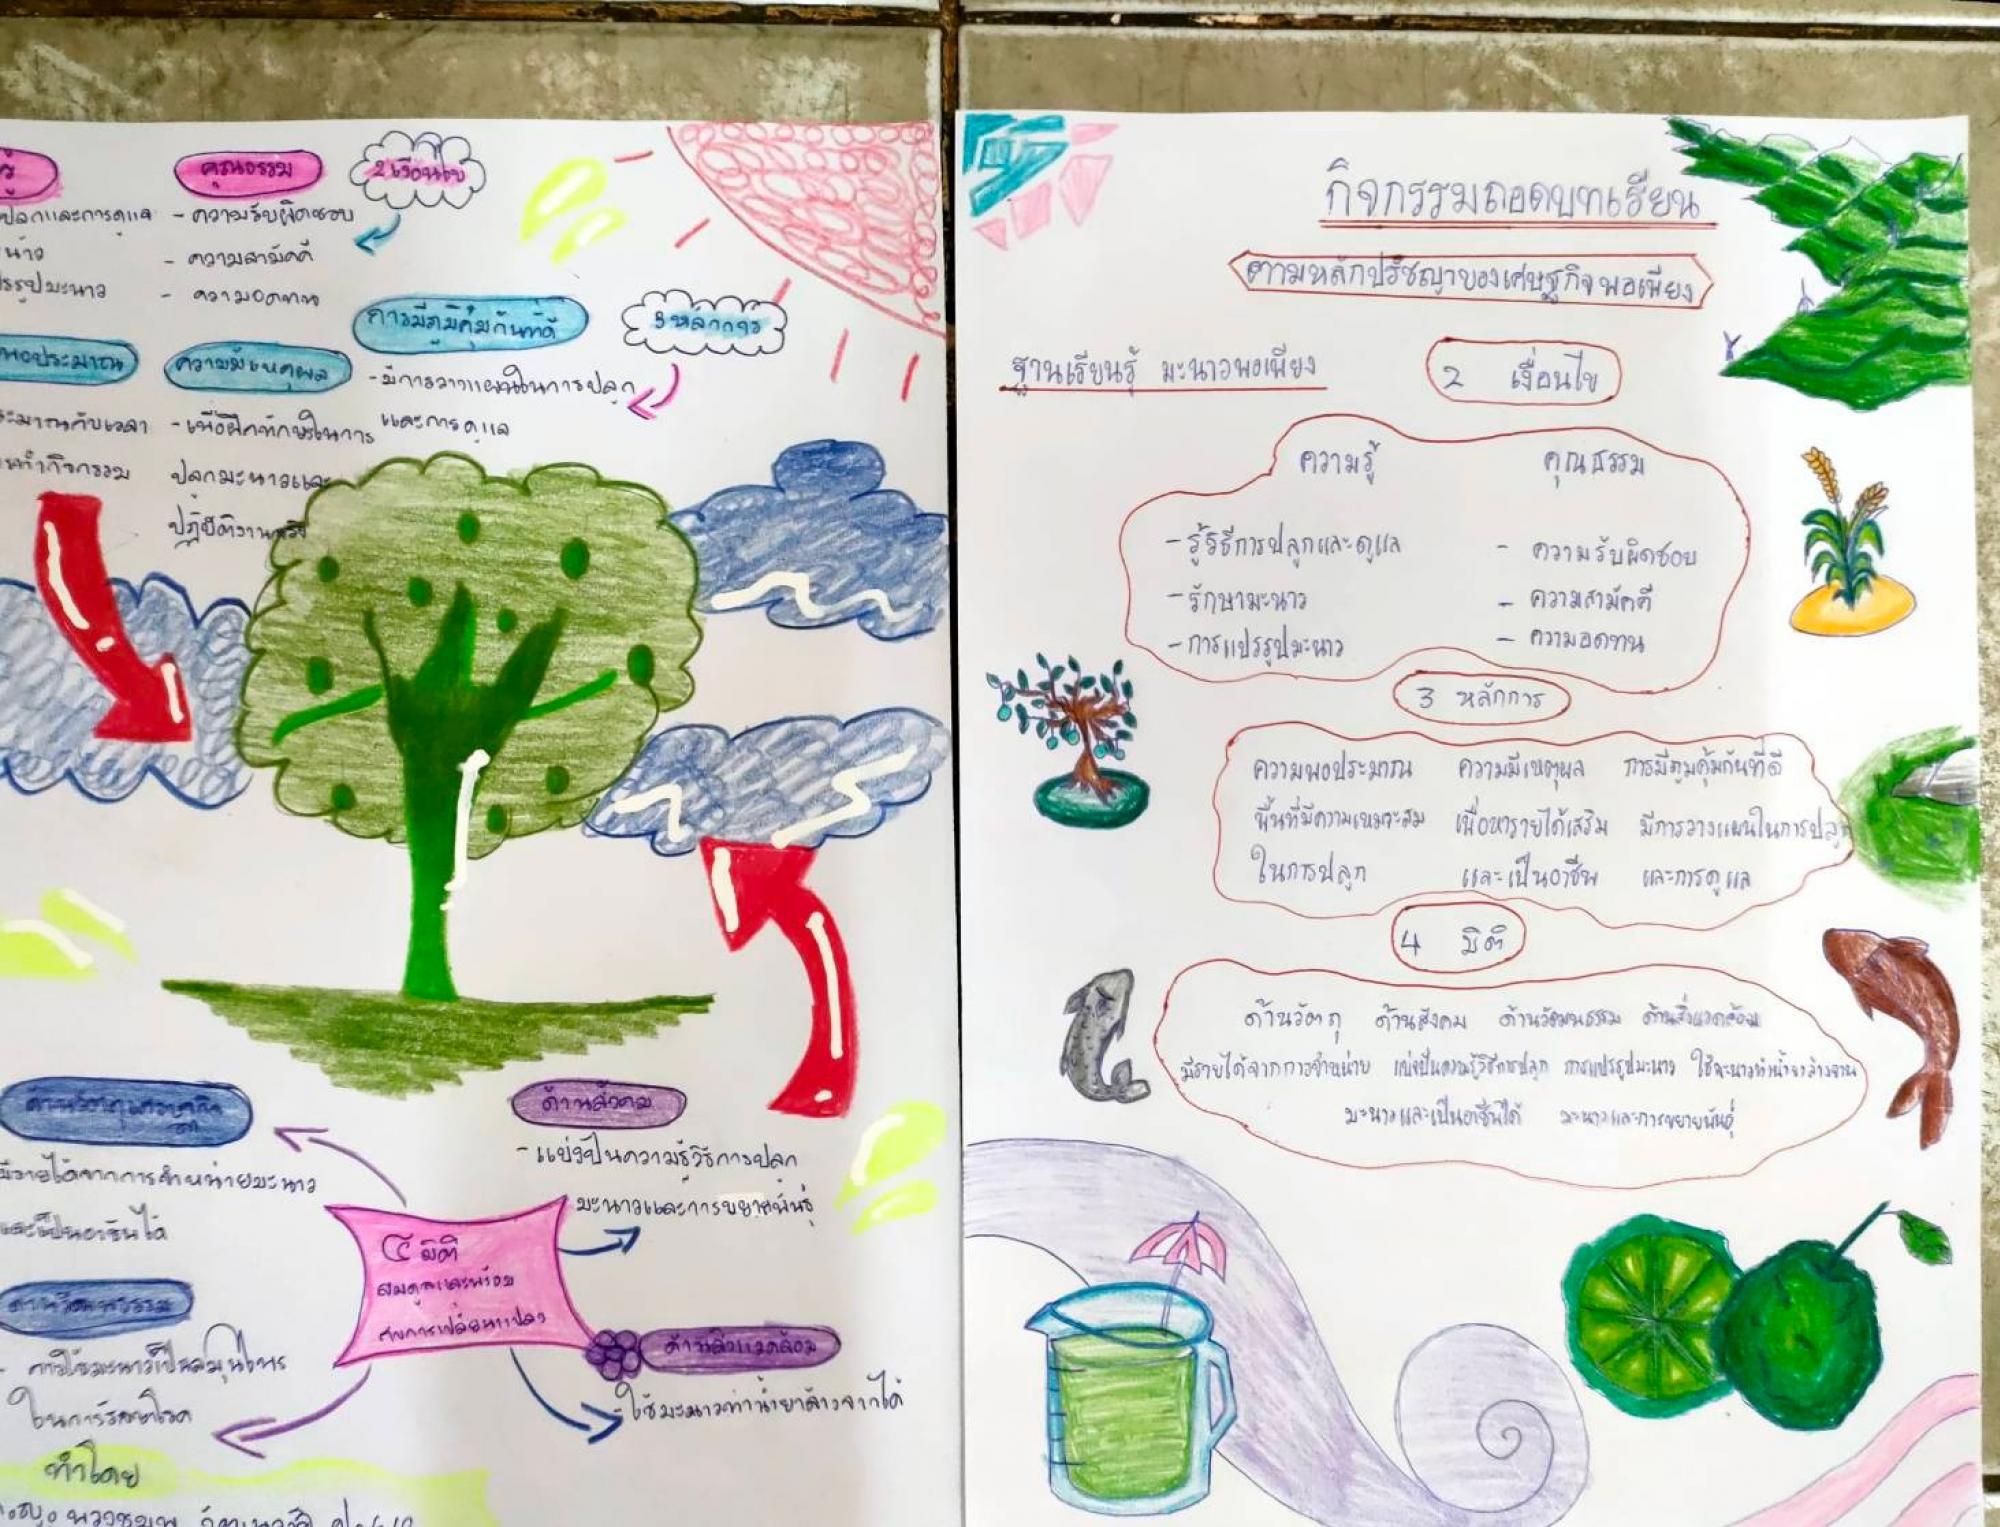 คุณธรรม
2 เงื่อนไข
ปลูกและการดูแล
- ความรับผิดชอบ
- ความสามัคคี
- ความอดทน
การมีภูมิคุ้มกันที่ดี
3 หลักการ
พอประมาณ
ความมีเหตุผล
- มีการวางแผนในการปลูก
และการดูแล
- เพื่อฝึกทักษะในการ
ปลูกมะนาวและ
ปฏิบัติงานจริง
ด้านวัตถุเศรษฐกิจ
มีรายได้จากการจำหน่ายมะนาว
และเป็นอาชีพได้
ด้านสังคม
- แบ่งปันความรู้วิธีการปลูก
มะนาวและการขยายพันธุ์
๔ มิติ
สมดุลและพร้อม
รับการเปลี่ยนแปลง
ด้านวัฒนธรรม
- การใช้มะนาวเป็นสมุนไพร
ในการรักษาโรค
ด้านสิ่งแวดล้อม
- ใช้มะนาวทำน้ำยาล้างจานได้
ทำโดย
กิจกรรมถอดบทเรียน
ตามหลักปรัชญาของเศรษฐกิจพอเพียง
ฐานเรียนรู้ มะนาวพอเพียง
2 เงื่อนไข
ความรู้ คุณธรรม
- รู้วิธีการปลูกและดูแล - ความรับผิดชอบ
- รักษามะนาว - ความสามัคคี
- การแปรรูปมะนาว - ความอดทน
3 หลักการ
ความพอประมาณ ความมีเหตุผล การมีภูมคุ้มกันที่ดี
พื้นที่มีความเหมาะสม เพื่อหารายได้เสริม มีการวางแผนในการปลูก
ในการปลูก และเป็นอาชีพ และการดูแล
4 มิติ
ด้านวัตถุ ด้านสังคม ด้านวัฒนธรรม ด้านสิ่งแวดล้อม
มีรายได้จากการจำหน่าย แบ่งปันความรู้วิธีการปลูก การแปรรูปมะนาว ใช้มะนาวทำน้ำยาล้างจาน
มะนาวและเป็นอาชีพได้ มะนาวและการขยายพันธุ์